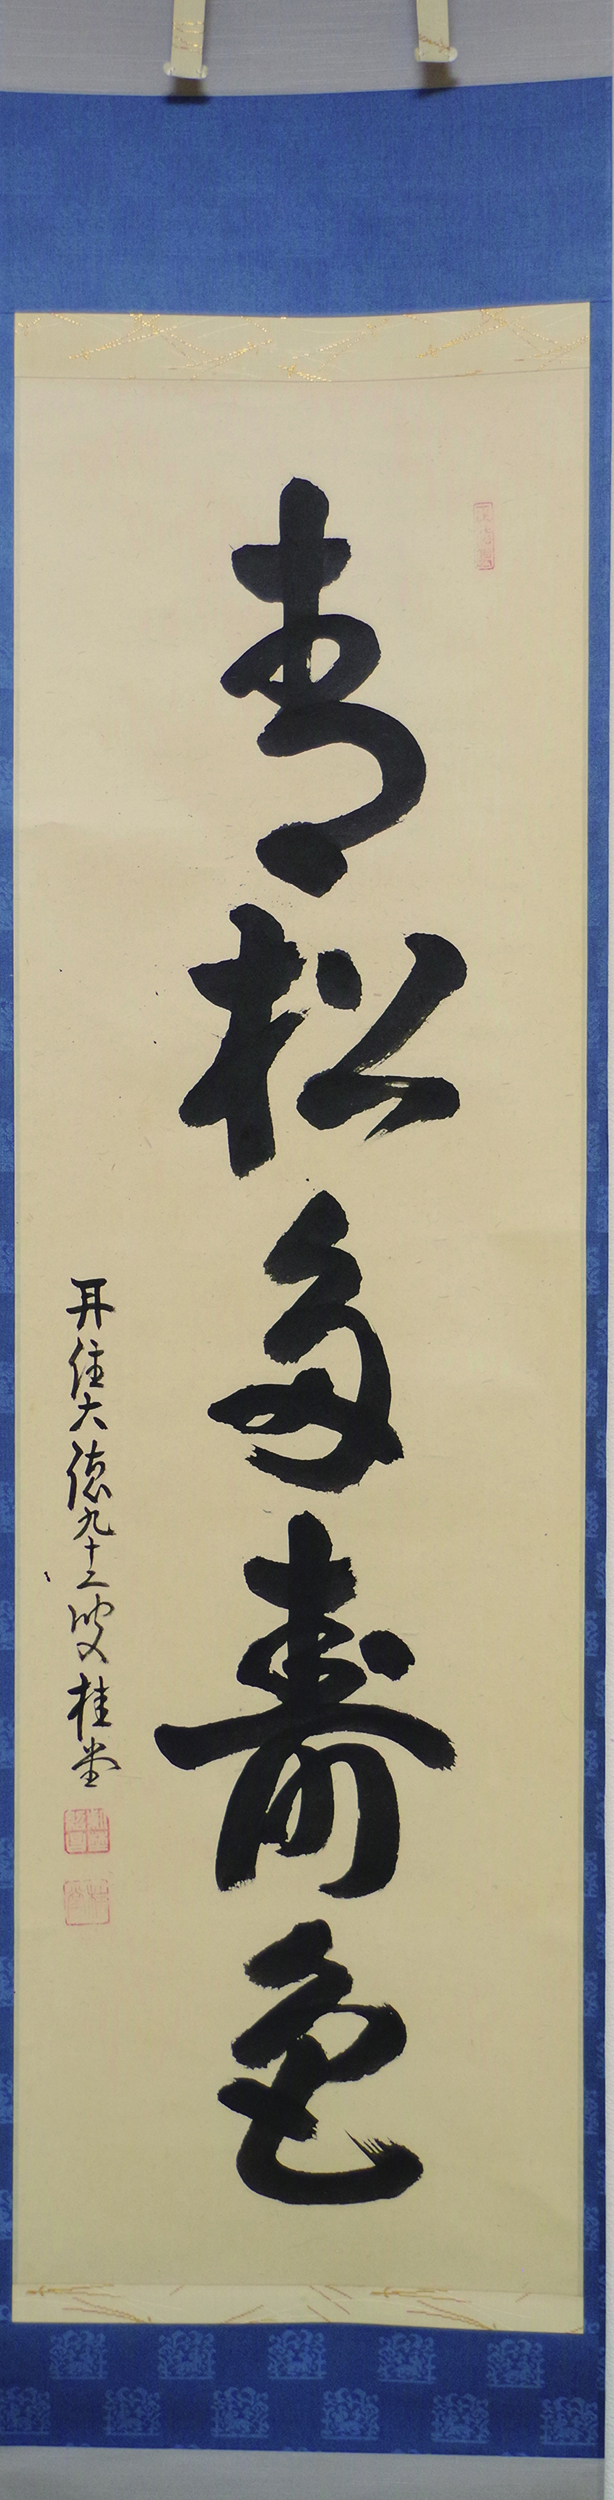 青松多寿色
再住大徳九十二叟桂堂